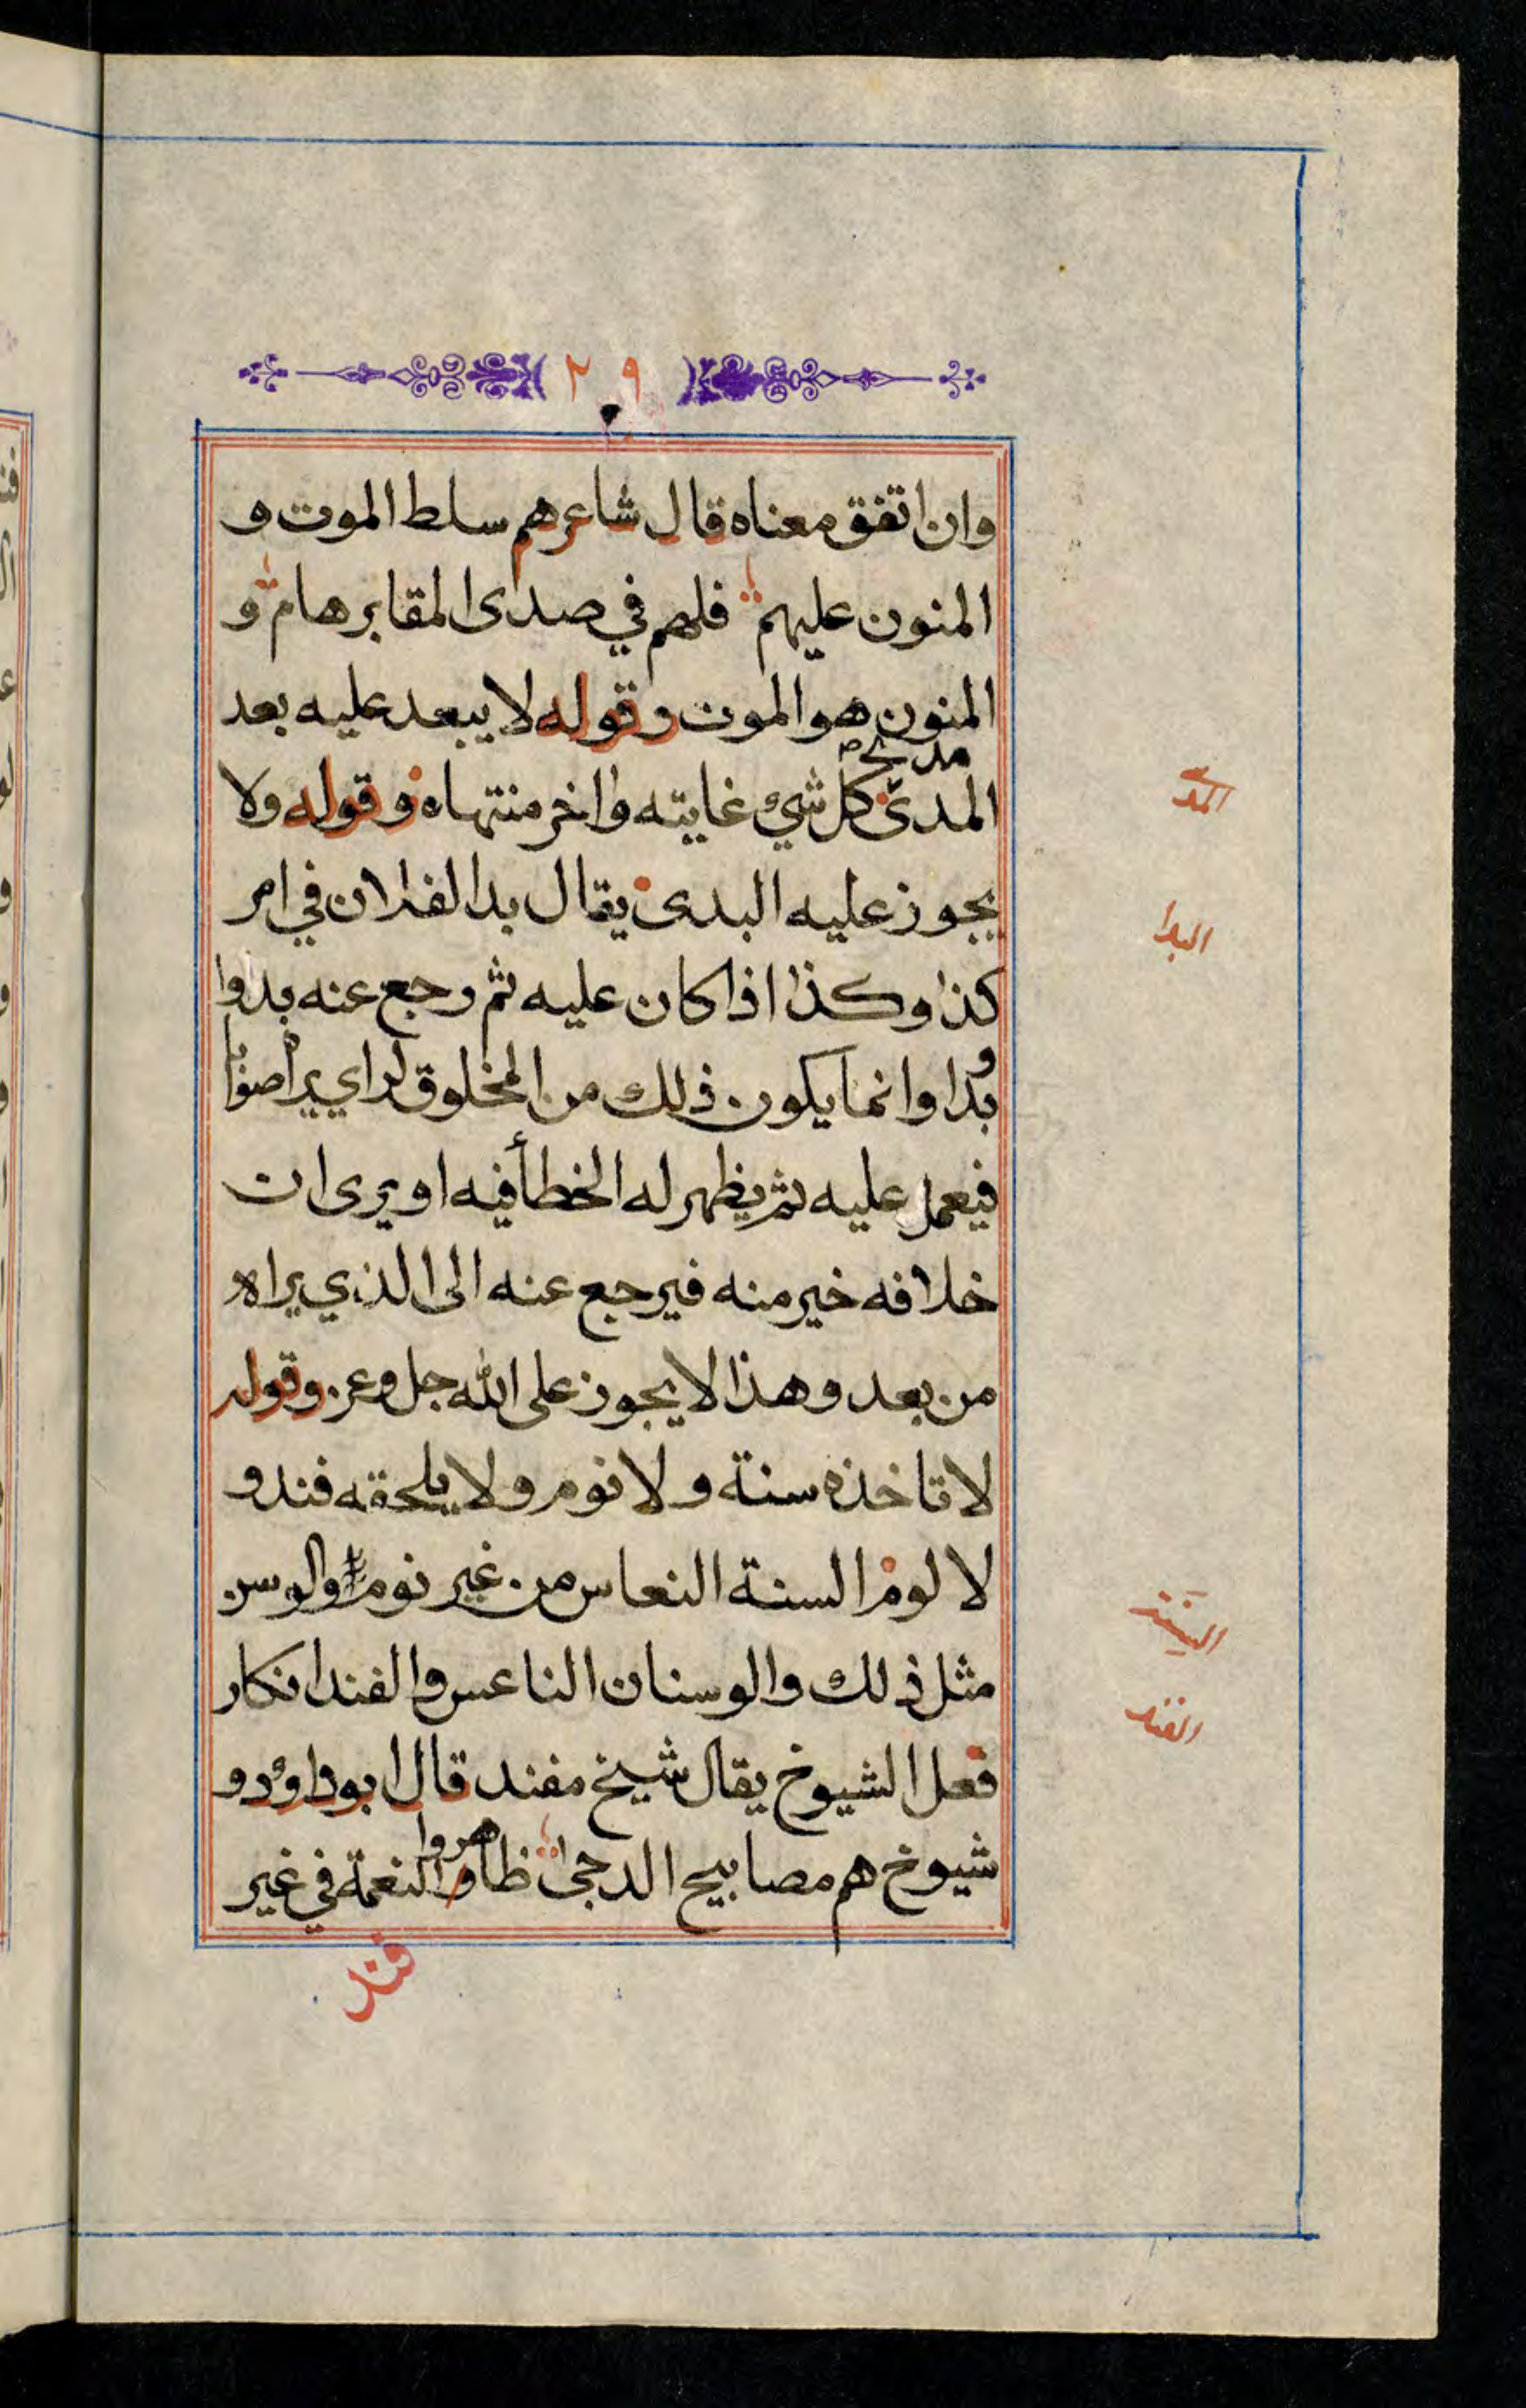 ٢٩
وان اتفق معناه قال شاعرهم سلط الموت و
المنون عليهم فلهم في صدى المقابر هام و
المنون هو الموت وقوله لا يبعد عليه بعد
مد
المدى كل شيء غايته واخر منتهاه وقوله ولا
المد
يجوز عليه البدى يقال بدا لفلان في امر
البدا
كذا وكذا اذا كان عليه ثم رجع عنه بدوا
و
بدا وانما يكون ذلك من المخلوق لراي يراه صوابا
فيعمل عليه ثم يظهر له الخطأ فيه او يرى ان
خلافه خير منه فيرجع عنه الى الذي يراه
من بعد وهذا لا يجوز على الله جل وعز وقوله
لا تاخذه سنة ولا نوم ولا يلحقه فند و
لا لوم السنة النعاس من غير نوم والوسن
السنة
مثل ذلك والوسنان الناعس والفند انكار
الفند
فعل الشيوخ يقال شيخ مفند قال ابو داود و
شيوخ هم مصابيح الدجى ظاهروا النعمة في غير
فند